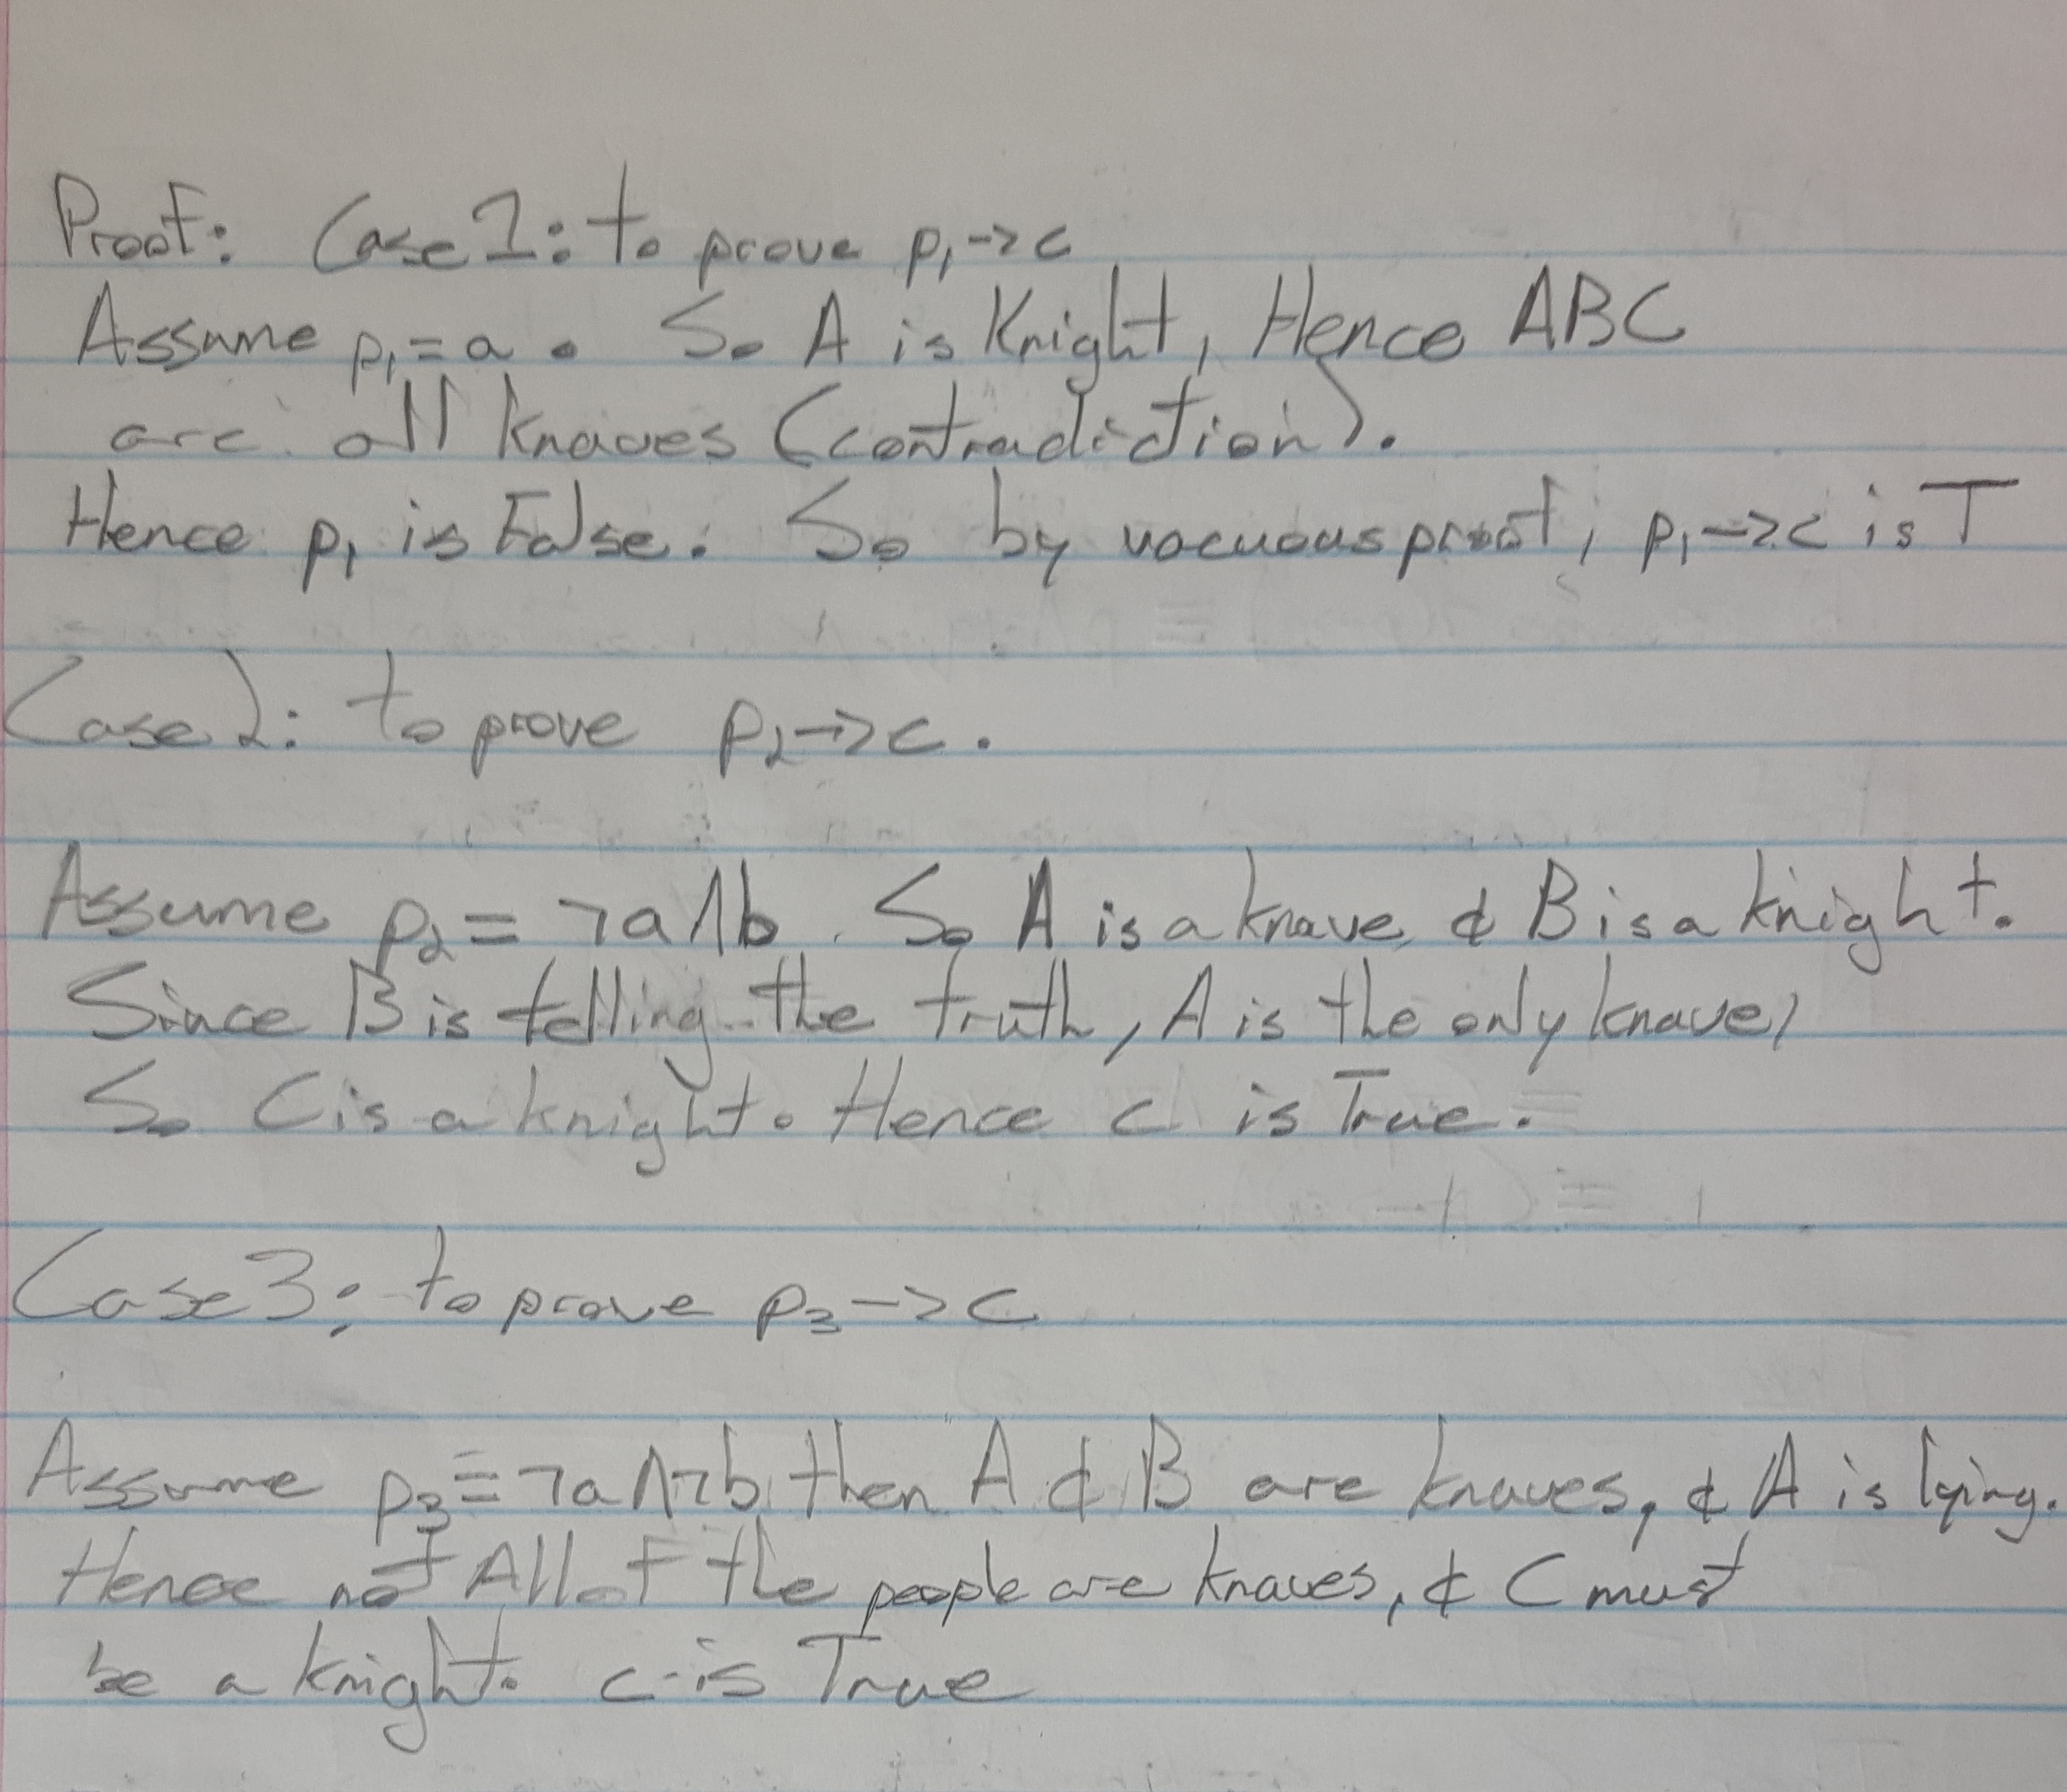 Proof: Case 1: to prove p₁->c
Assume p₁=a. So A is Knight, Hence ABC
are all knaves (contradiction).
Hence p₁ is False. So by vacuous proof, p₁->c is T
Case 2: to prove p₂->c.
Assume p₂=¬a∧b. So A is a knave, & B is a knight.
Since B is telling the truth, A is the only knave,
So C is a knight. Hence c is True.
Case 3: to prove p₃->c
Assume p₃≡¬a∧¬b, then A & B are knaves, & A is lying.
Hence not All of the people are knaves, & C must
be a knight. c is True